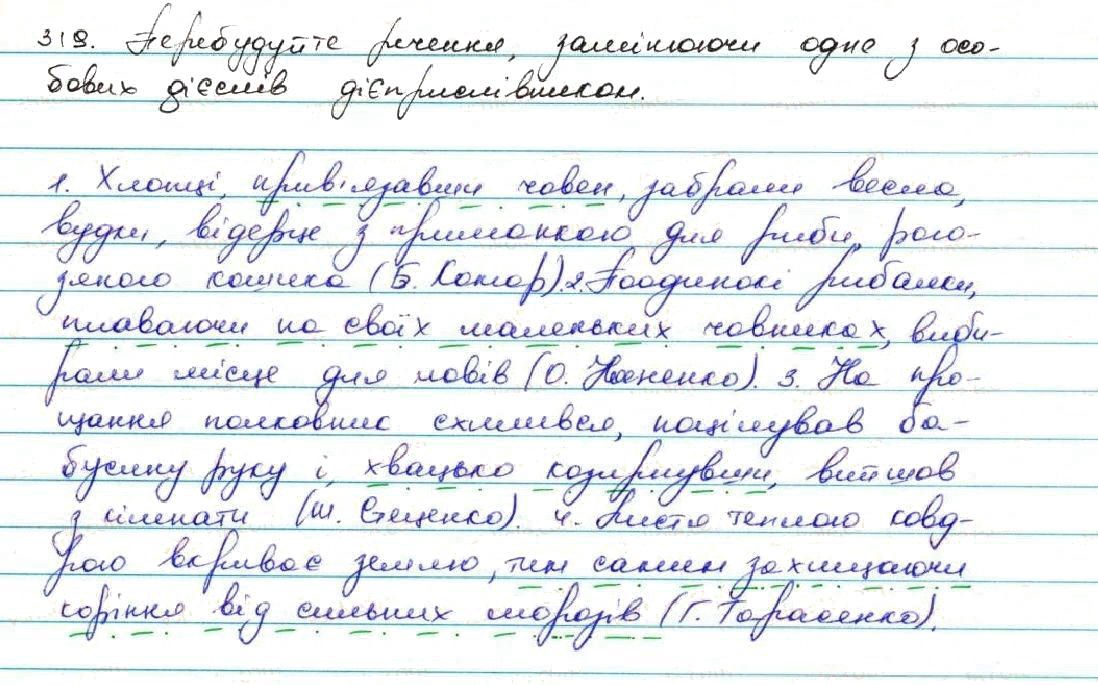 319. Перебудуйте речення, замінюючи одне з осо-
бових дієслів дієприслівником.
1. Хлопці, прив'язавши човен, забрали весла,
вудки, відерце з приманкою для риби, рого-
зяного кошика (Б. Комар). 2. Поодинокі рибалки,
плаваючи на своїх маленьких човниках, виби-
рали місце для ловів (О. Іваненко). 3. На про-
щання полковник схилився, поцілував ба-
бусину руку і, хвацько козирнувши, вийшов
з кімнати (Ш. Стеценко). 4. Листя теплою ковд-
рою вкриває землю, тим самим захищаючи
коріння від сильних морозів (Г. Тарасенко).